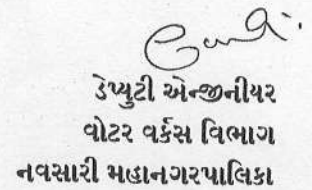 ડેપ્યુટી એન્જીનીયર
વોટર વર્કસ વિભાગ
નવસારી મહાનગરપાલિકા